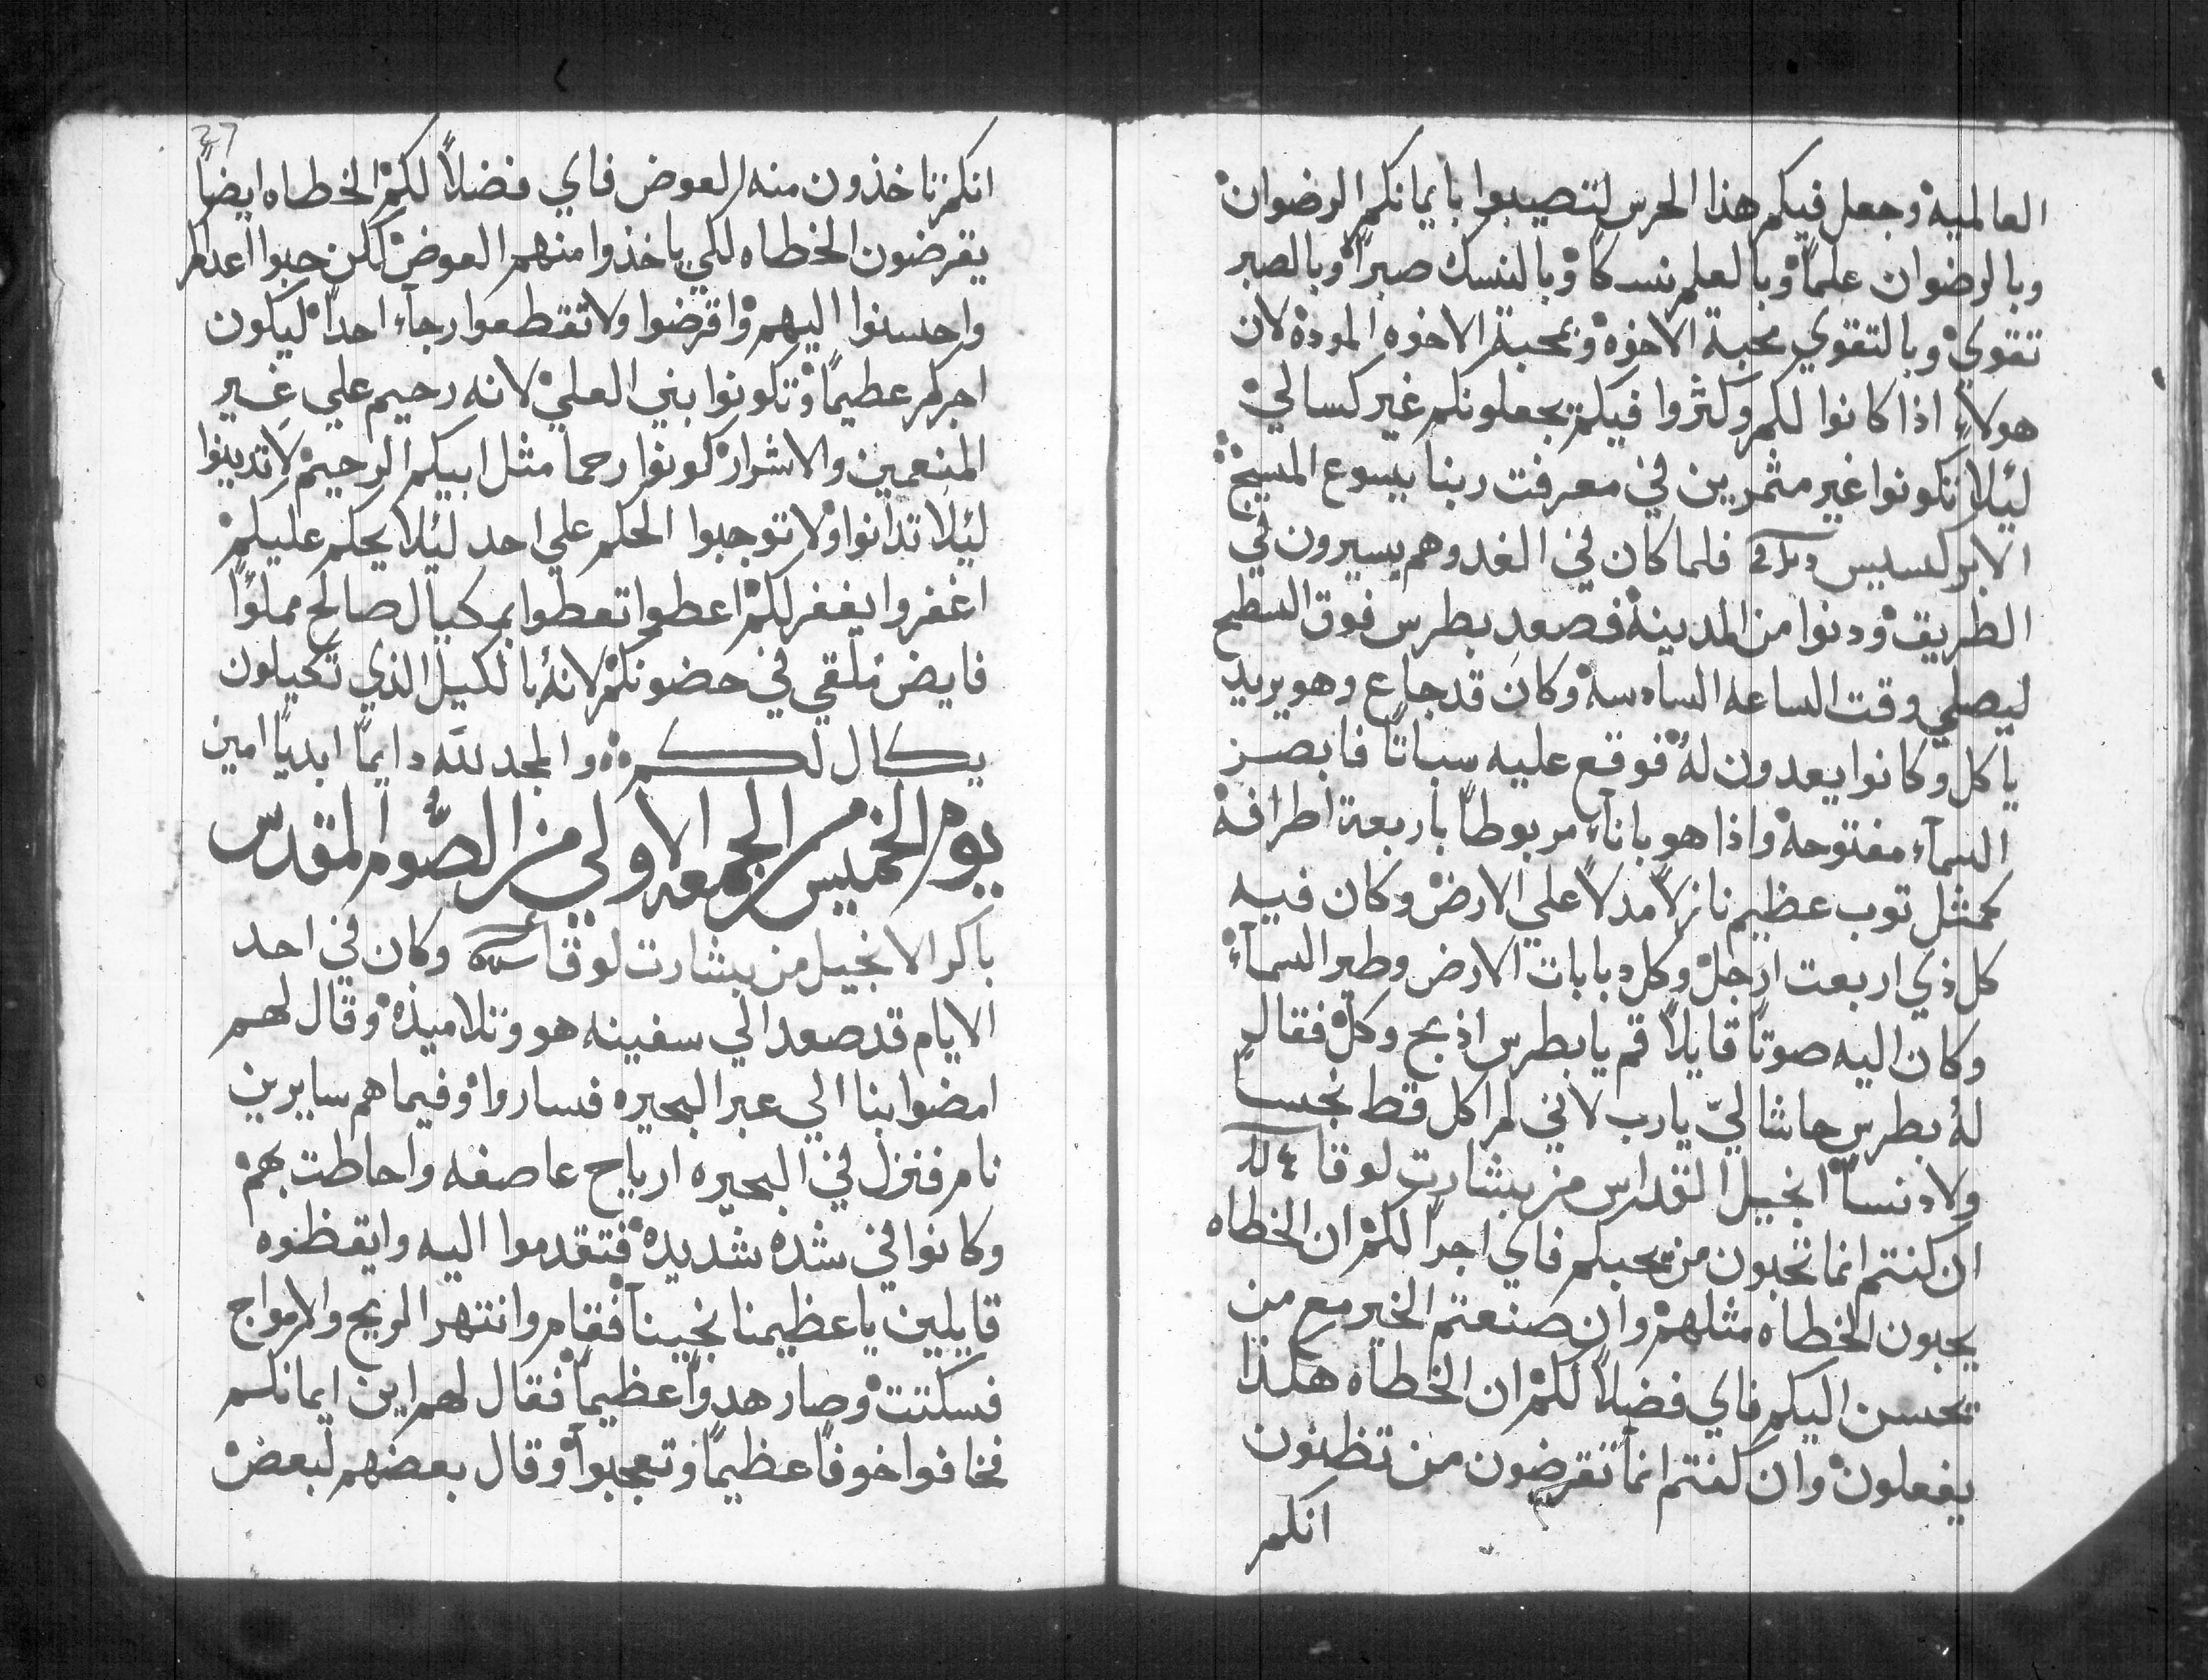 العالميه وجعل فيكم هذا الحرس لتصيبوا بايمانكم الرضوان
وبالرضوان علماً وبالعلم نسكاً وبالنسك صبراً وبالصبر
تقوي وبالتقوي محبة الاخوه وبمحبة الاخوه المودة لان
هولاءِ اذا كانوا لكم وكثروا فيكم تجعلونكم غير كسالي
لئلا تكونوا غير مثمرين في معرفت ربنا يسوع المسيح
الابركسيس فلما كان في الغد وهم يسيرون في
الطريق ودنوا من المدينة فصعد بطرس فوق السطح
ليصلي وقت الساعه السادسه وكان قد جاع وهو يريد
ياكل وكانوا يعدون لهُ فوقع عليه سباتاً فابصر
السمآء مفتوحة واذا هو باناء مربوطاً باربعة اطرافه
كمثل توب عظيم نازلاً مدلاً علي الارض وكان فيه
كل ذي اربعت ارجل وكل دبابات الارض وطير السمآء
وكان اليه صوتاً قايلاً قم يا بطرس اذبح وكل فقال
لهُ بطرس حاشا ليّ يارب لانني لم اكل قط نجساً
ولا دنساً انجيل القداس من بشارت لوقا
ان كنتم انما تحبون من يحبكم فاي اجراً لكم ان الخطاه
يحبون الخطاه مثلهم وان صنعتم الخير مع من
يحسن اليكم فاي فضلاً لكم ان الخطاه هكذا
يفعلون وان كنتم انما تقرضون من تظنون
انكم
27
انكم تاخذون منه العوض فاي فضلاً لكم الخطاه ايضاً
يقرضون الخطاه لكي ياخذوا منهم العوض لكن حبوا اعداكم
واحسنوا اليهم واقرضوا ولا تقطعوا رجآء احداً ليكون
اجركم عظيماً وتكونوا بني العلي لانه رحيم علي غير
المنعمين والاشرار كونوا رحما مثل ابيكم الرحيم لا تدينوا
لئلا تدانوا ولا توجبوا الحكم علي احد لئلا يحكم عليكم
اغفروا يغفر لكم اعطوا تعطوا بمكيال صالح مملوًا
فايض تلقي في حضونكم لانهُ بالكيل الذي تكيلون
يكال لكم والمجد للّه دايماً ابدياً امين
يوم الخميس من الجمعه الاولي من الصوم المقدس
باكر الانجيل من بشارت لوقا وكان في احد
الايام قد صعد الي سفينه هو وتلاميذه وقال لهم
امضوا بنا الي عبر البحيره فساروا وفيما هم سايرين
نام فنزل في البحيره ارياح عاصفه واحاطت بهم
وكانوا في شده شديده فتقدموا اليه وايقظوه
قايلين يا عظيمنا نجينا فقام وانتهر الريح والامواج
فسكتت وصار هدواً عظيماً فقال لهم اين ايمانكم
فخافوا خوفاً عظيماً وتعجبوا وقال بعضهم لبعض